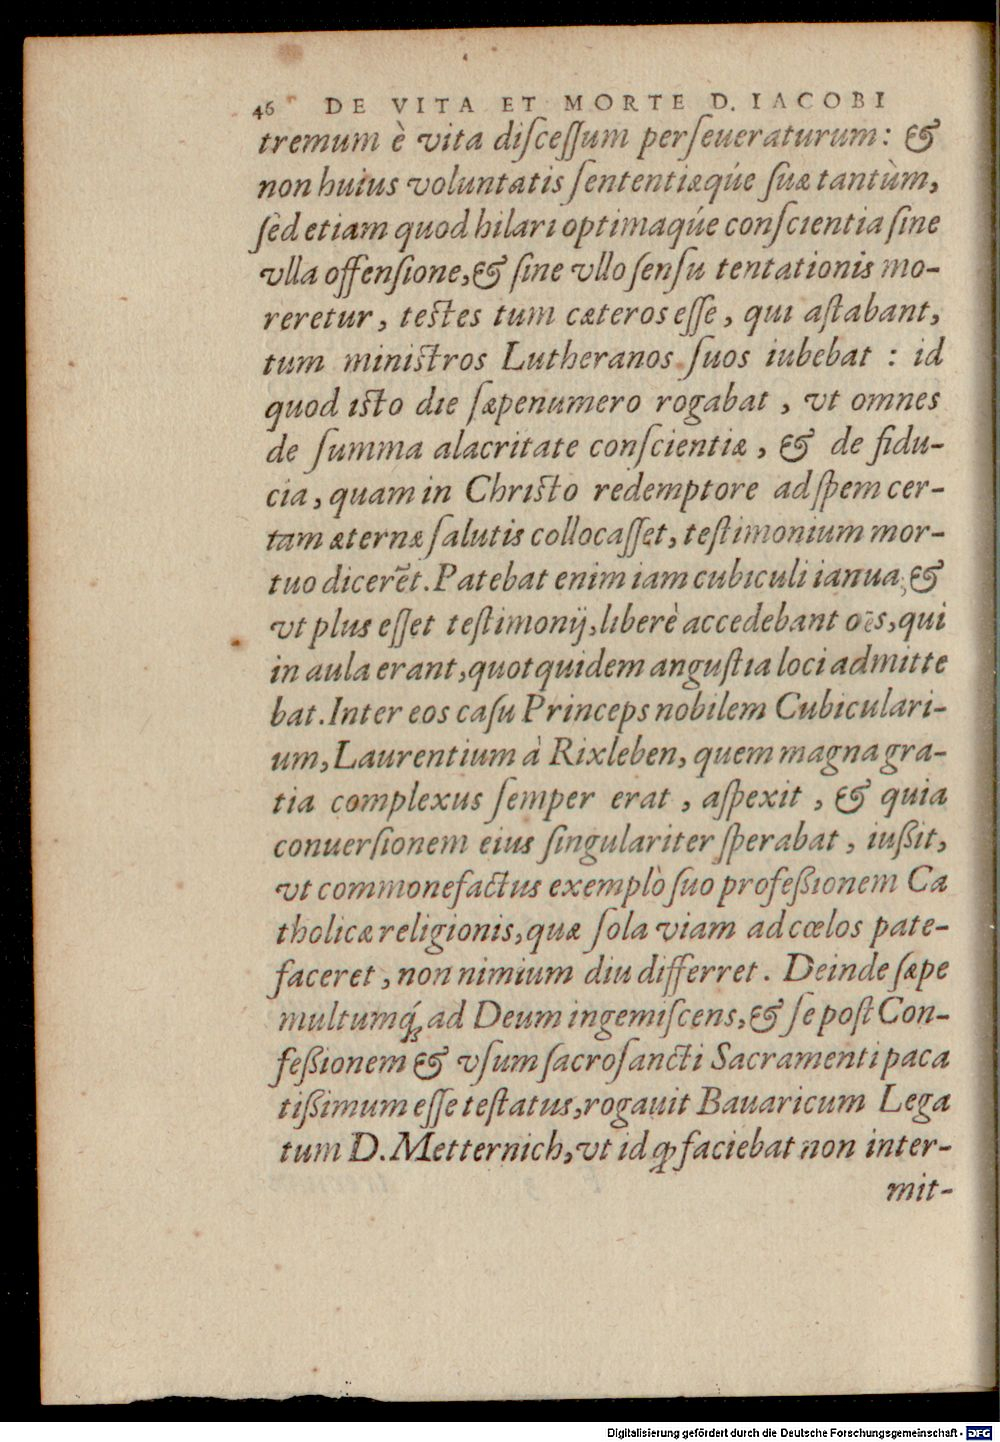 46 DE VITA ET MORTE D. IACOBI
tremum è vita diſceſſum perſeueraturum: &
non huius voluntatis ſententiæq́ue ſuæ tantùm,
ſed etiam quod hilari optimaq́ue conſcientia ſine
vlla offenſione, & ſine vllo ſenſu tentationis mo-
reretur, teſtes tum cæteros eſſe, qui aſtabant,
tum miniſtros Lutheranos ſuos iubebat : id
quod iſto die ſæpenumero rogabat , vt omnes
de ſumma alacritate conſcientiæ , & de fidu-
cia, quam in Chriſto redemptore ad ſpem cer-
tam æternæ ſalutis collocaſſet, teſtimonium mor-
tuo dicerẽt. Patebat enim iam cubiculi ianua, &
vt plus eſſet teſtimonij, liberè accedebant oẽs, qui
in aula erant, quot quidem anguſtia loci admitte
bat. Inter eos caſu Princeps nobilem Cubiculari-
um, Laurentium à Rixleben, quem magna gra-
tia complexus ſemper erat , aſpexit , & quia
conuerſionem eius ſingulariter ſperabat , iußit,
vt commonefactus exemplò ſuo profeßionem Ca
tholicæ religionis, quæ ſola viam ad cœlos pate-
faceret , non nimium diu differret. Deinde ſæpe
multumq́ꝫ ad Deum ingemiſcens, & ſe poſt Con-
feßionem & vſum ſacroſancti Sacramenti paca
tißimum eſſe teſtatus, rogauit Bauaricum Lega
tum D. Metternich, vt id qđ faciebat non inter-
mit-
Digitalisierung gefördert durch die Deutsche Forschungsgemeinschaft - DFG